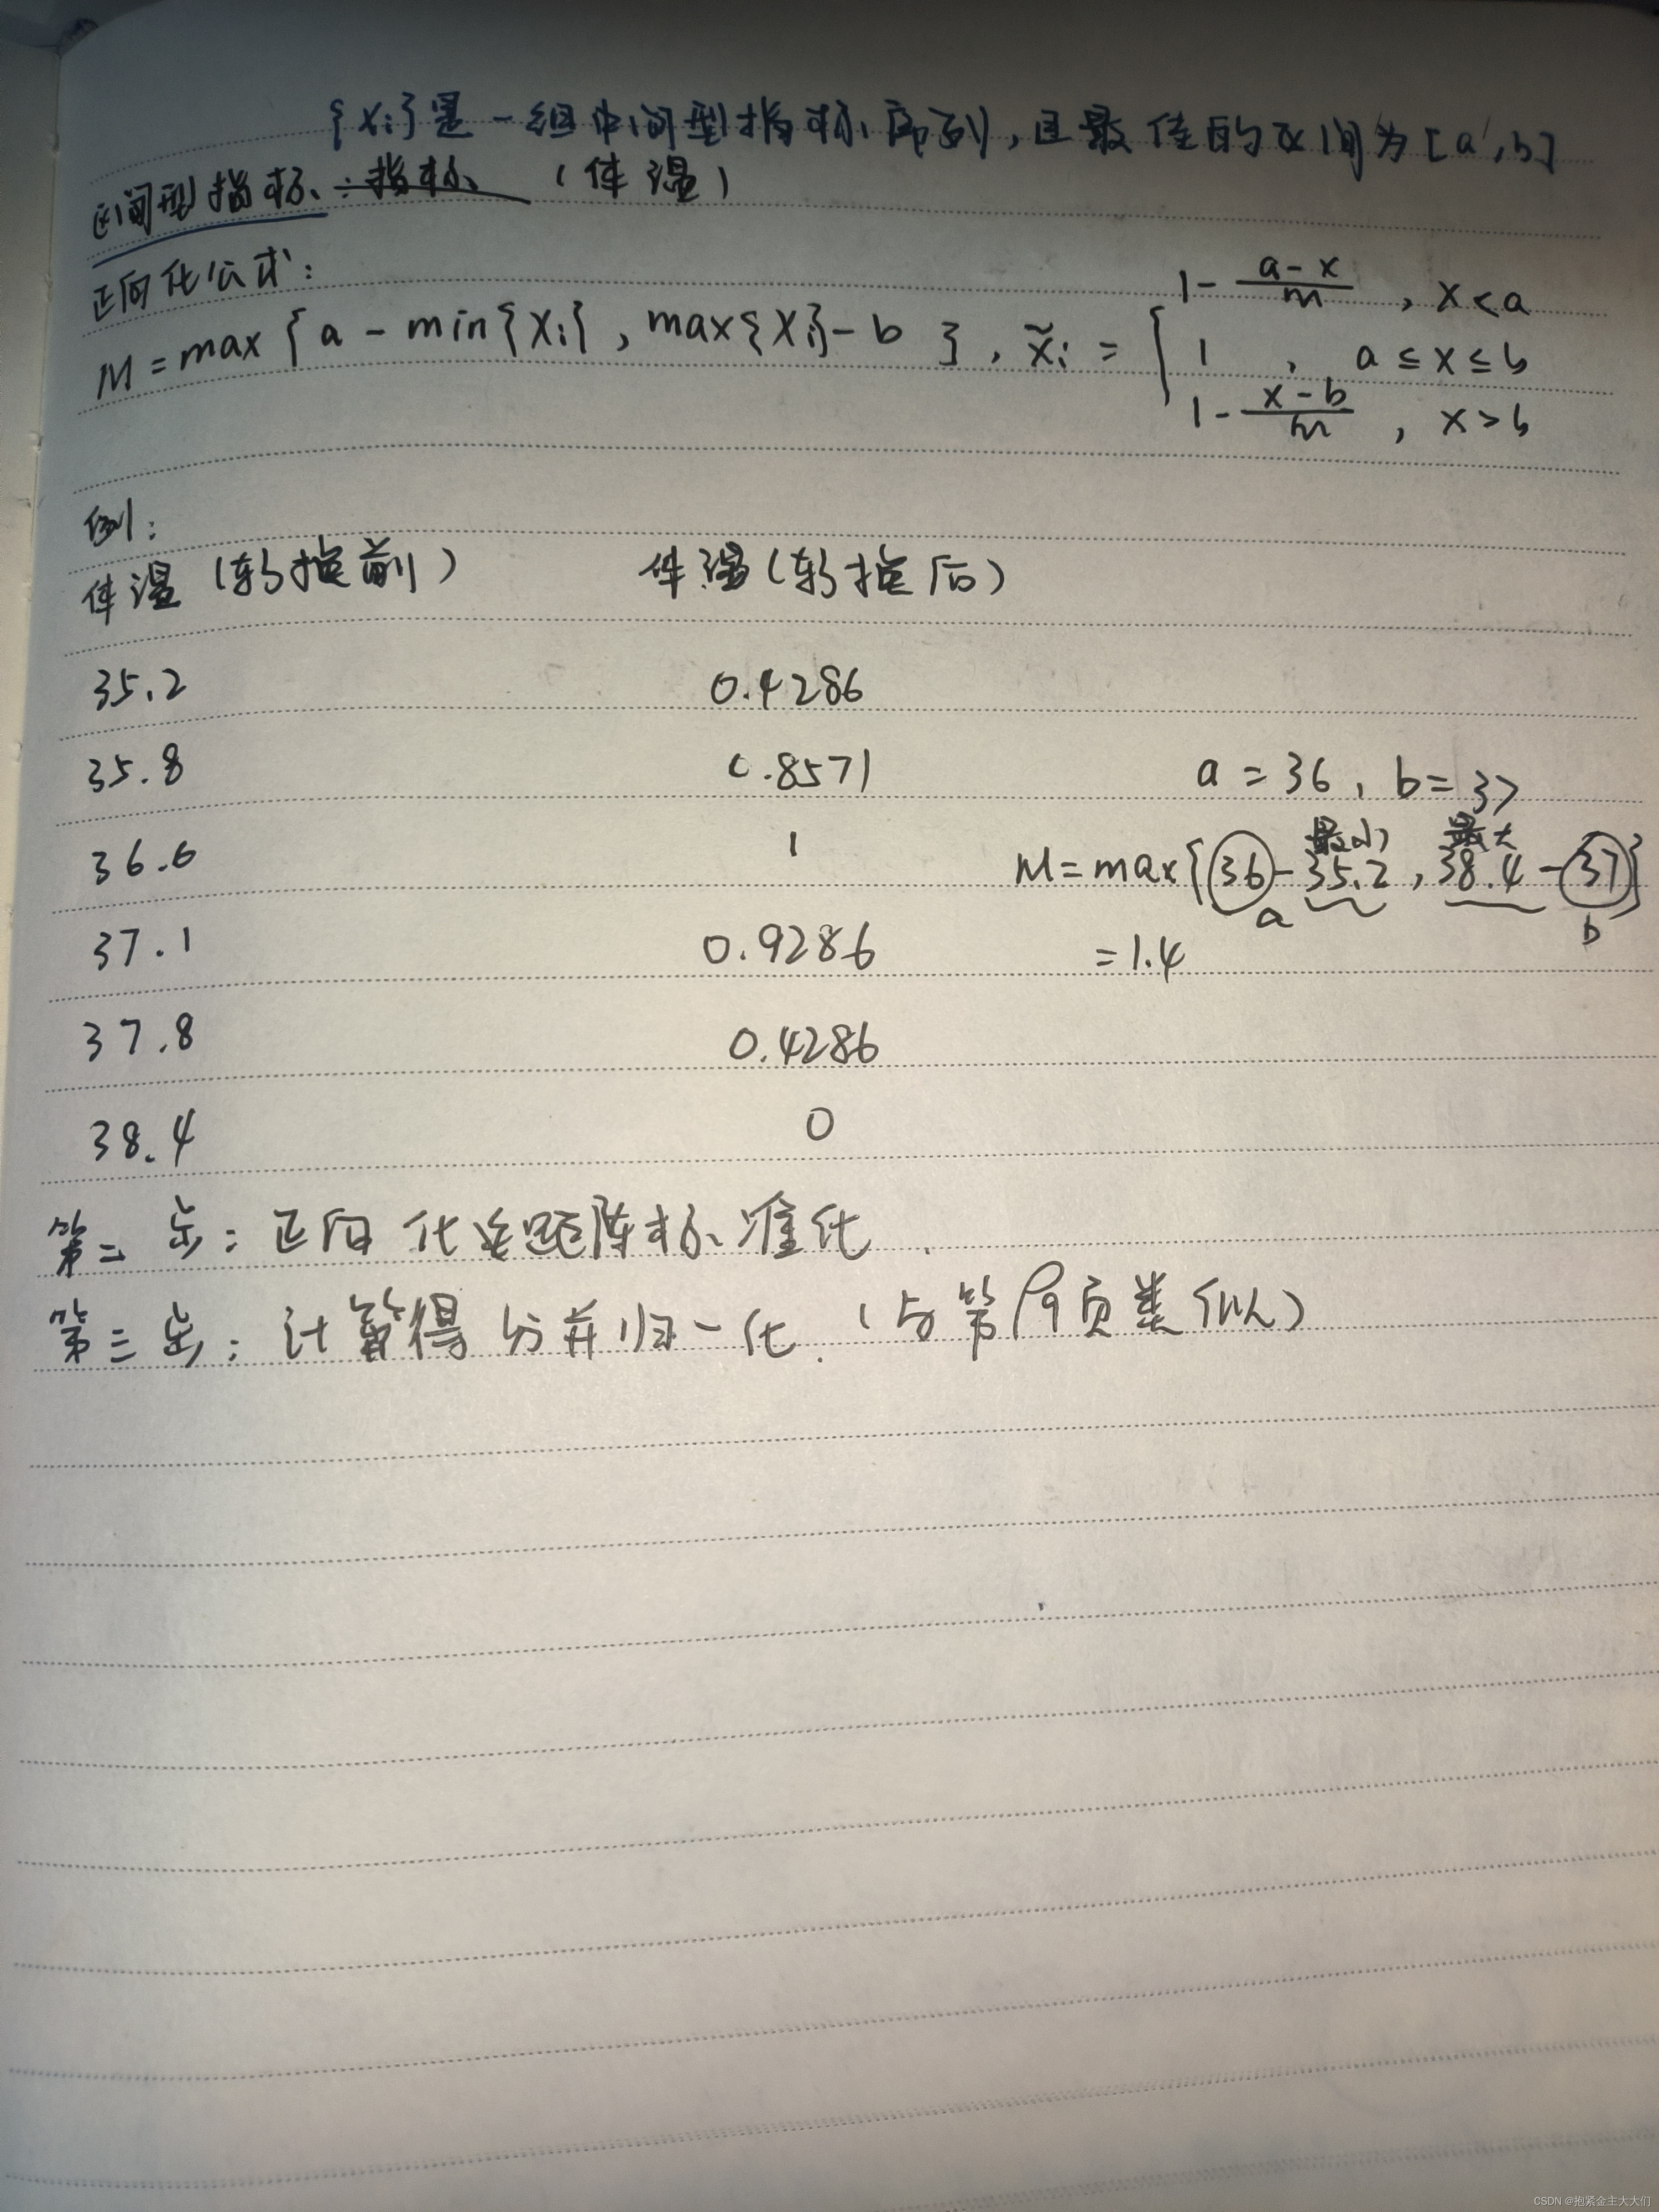 {xi}是一组中间型指标序列，且最佳的区间为[a,b]
区间型指标：指标 (体温)
正向化公式：
M=max{a-min{xi},max{xi}-b}, x̃i={1-(a-x)/M, x<a
1, a≤x≤b
1-(x-b)/M, x>b
例：
体温(转换前) 体温(转换后)
35.2 0.4286
35.8 0.8571 a=36, b=37
最小 最大
36.6 1 M=max{36-35.2,38.4-37}
a b
37.1 0.9286 =1.4
37.8 0.4286
38.4 0
第二步：正向化矩阵标准化
第三步：计算得分并归一化.(与第9页类似)
CSDN @抱紧金主大大们